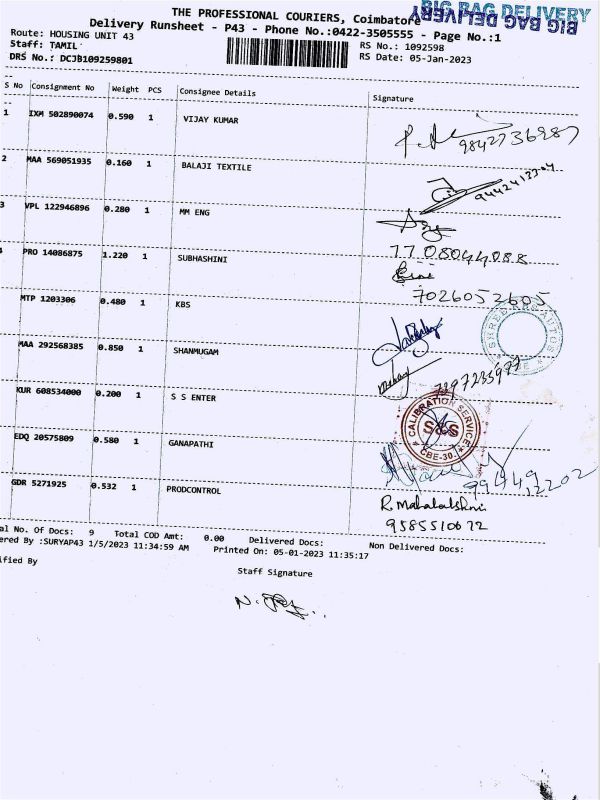 BIG BAG DELIVERY
BIG BAG DELIVERY
THE PROFESSIONAL COURIERS, Coimbatore
Delivery Runsheet - P43 - Phone No.:0422-3505555 - Page No.:1
Route: HOUSING UNIT 43 RS No.: 1092598
Staff: TAMIL RS Date: 05-Jan-2023
DRS No.: DCJB109259801
S No Consignment No Weight PCS Consignee Details Signature
1 IXM 502890074 0.590 1 VIJAY KUMAR
9842736987
2 MAA 569051935 0.160 1 BALAJI TEXTILE
3 VPL 122946896 0.280 1 MM ENG
7708044088
PRO 14086875 1.220 1 SUBHASHINI
7026052605
MTP 1203306 0.480 1 KBS
SHREE AUTOS
MAA 292568385 0.850 1 SHANMUGAM
KUR 608534000 0.200 1 S S ENTER
CALIBRATION SERVICE
S&S
CBE-30.
EDQ 20575809 0.580 1 GANAPATHI
GDR 5271925 0.532 1 PRODCONTROL
R. Mahalakshmi
9585510672
al No. Of Docs: 9 Total COD Amt: 0.00 Delivered Docs: Non Delivered Docs:
ered By :SURYAP43 1/5/2023 11:34:59 AM Printed On: 05-01-2023 11:35:17
ified By
Staff Signature